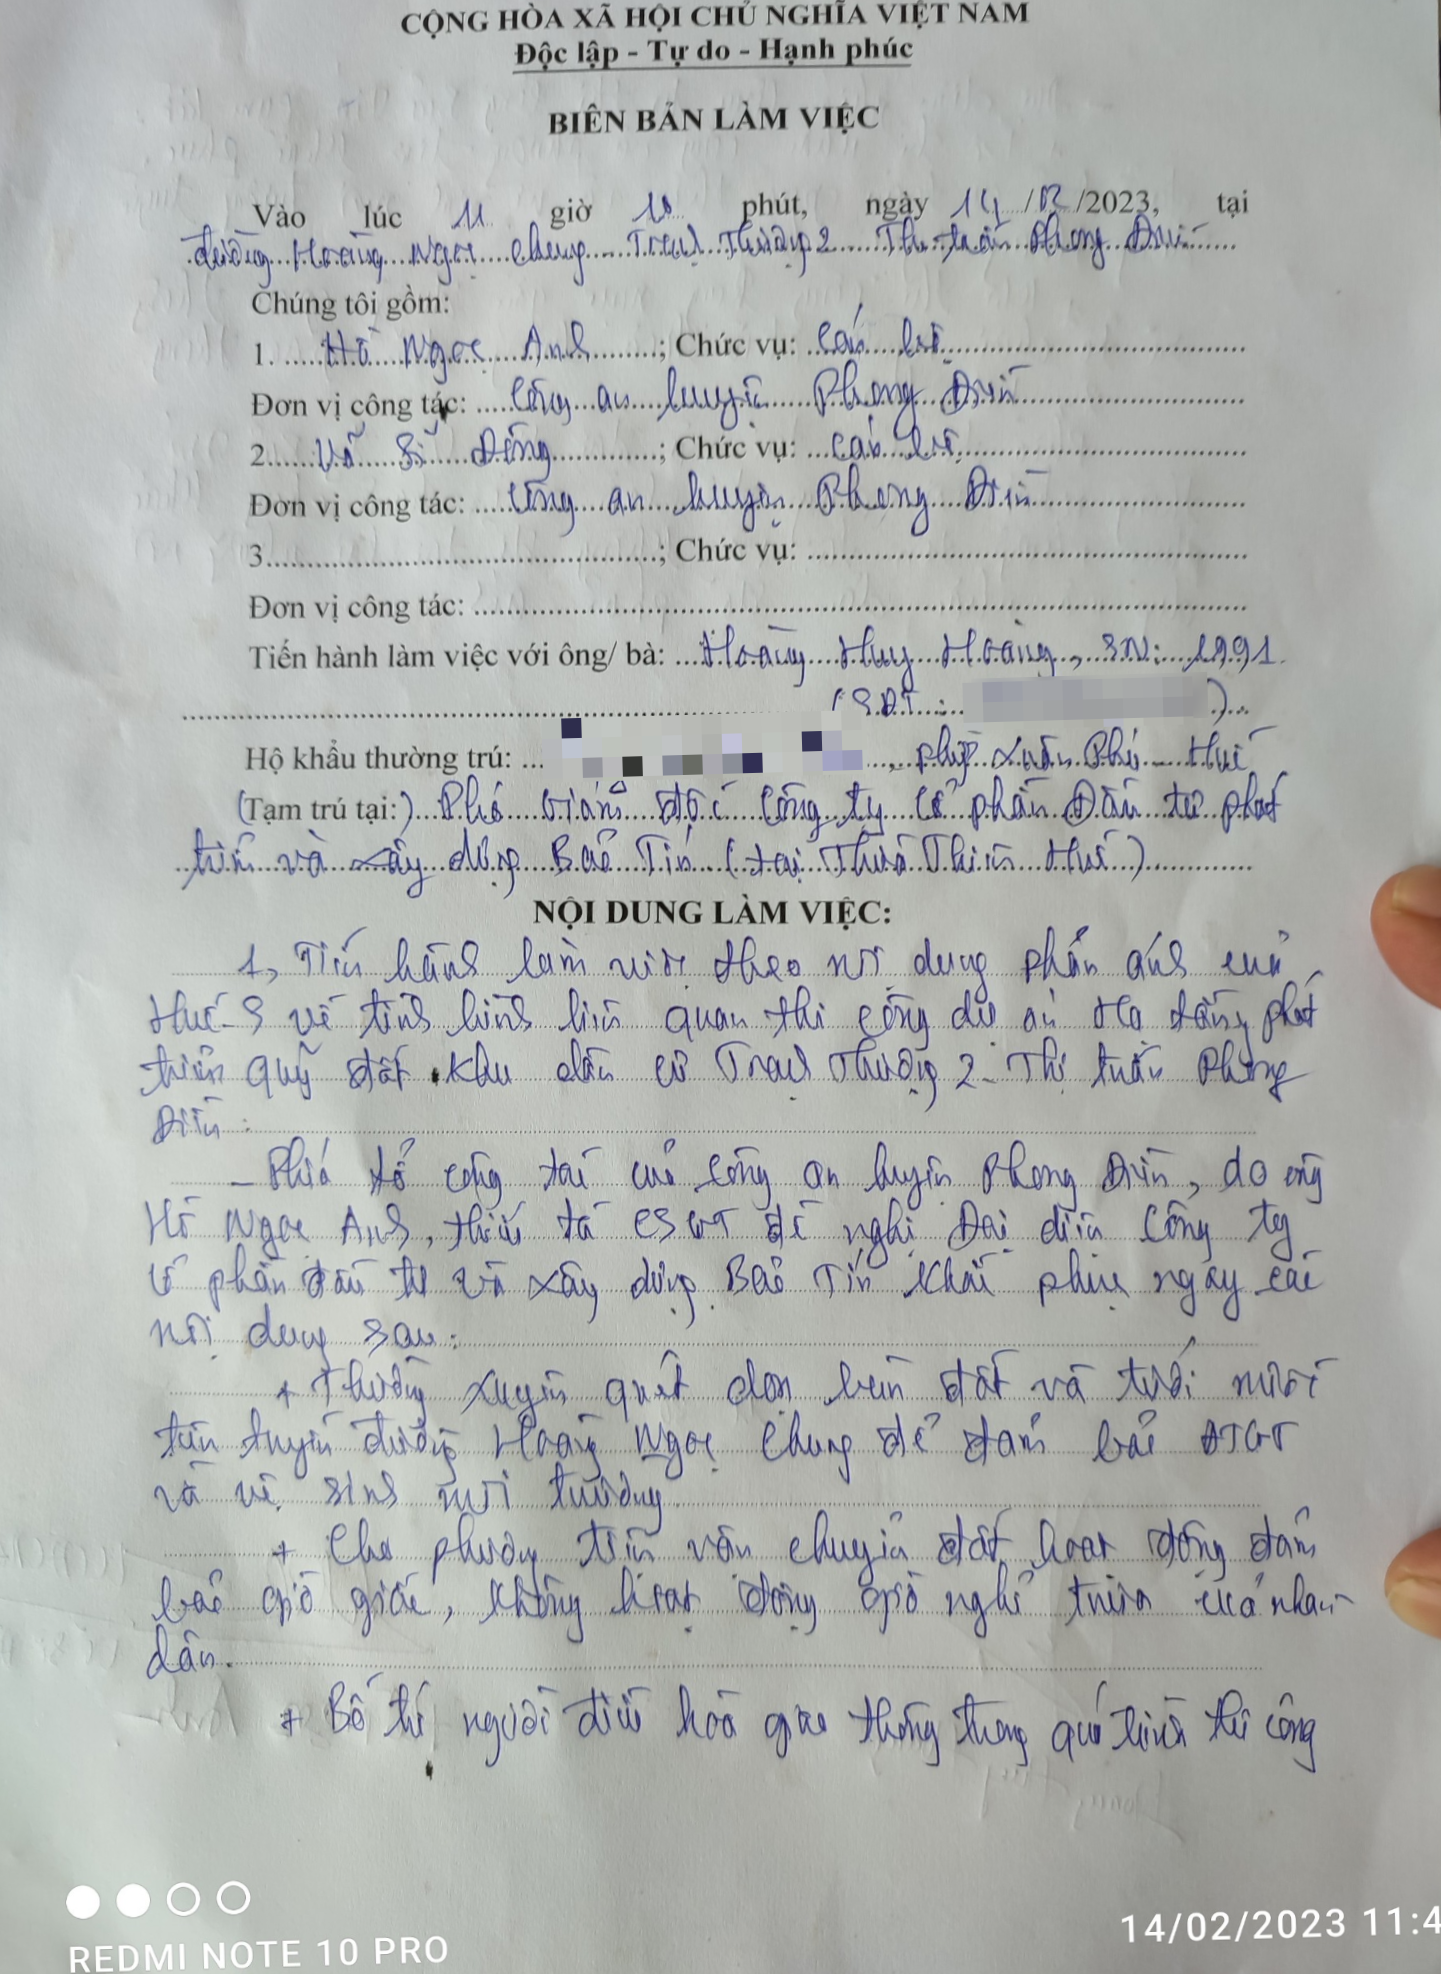 CỘNG HÒA XÃ HỘI CHỦ NGHĨA VIỆT NAM
Độc lập - Tự do - Hạnh phúc
BIÊN BẢN LÀM VIỆC
Vào lúc 11 giờ 10 phút, ngày 14/02/2023, tại
đường Hoàng Ngọc Chung - Trạch Thượng 2 Thị trấn Phong Điền
Chúng tôi gồm:
1. Hồ Ngọc Anh; Chức vụ: Cán bộ
Đơn vị công tác: Công an huyện Phong Điền
2. Võ Sĩ Đông; Chức vụ: cán bộ
Đơn vị công tác: Công an huyện Phong Điền
3.; Chức vụ:
Đơn vị công tác:
Tiến hành làm việc với ông/ bà: Hoàng Huy Hoàng, SN: 1991
(SĐT: )
Hộ khẩu thường trú: , Xuân Phú - Huế
(Tạm trú tại:) Phó Giám đốc Công ty Cổ phần Đầu tư phát
triển và xây dựng Bảo Tín (tại Thừa Thiên Huế)
NỘI DUNG LÀM VIỆC:
1, Tiến hành làm việc theo nội dung phản ánh của
Huế-S về tình hình liên quan thi công dự án Hạ tầng phát
triển quỹ đất khu dân cư Trạch Thượng 2 - Thị trấn Phong
Điền:
- Phía tổ công tác của Công an huyện Phong Điền, do ông
Hồ Ngọc Anh, thiếu tá CSGT đề nghị Đại diện Công ty
Cổ phần đầu tư và xây dựng Bảo Tín khắc phục ngay các
nội dung sau:
+ Thường xuyên quét dọn bùn đất và tưới nước
trên tuyến đường Hoàng Ngọc Chung để đảm bảo ATGT
và vệ sinh môi trường.
+ Cho phương tiện vận chuyển đất hoạt động đảm
bảo giờ giấc, không hoạt động giờ nghỉ trưa của nhân
dân.
+ Bố trí người điều hòa giao thông trong quá trình thi công
REDMI NOTE 10 PRO
14/02/2023 11:4